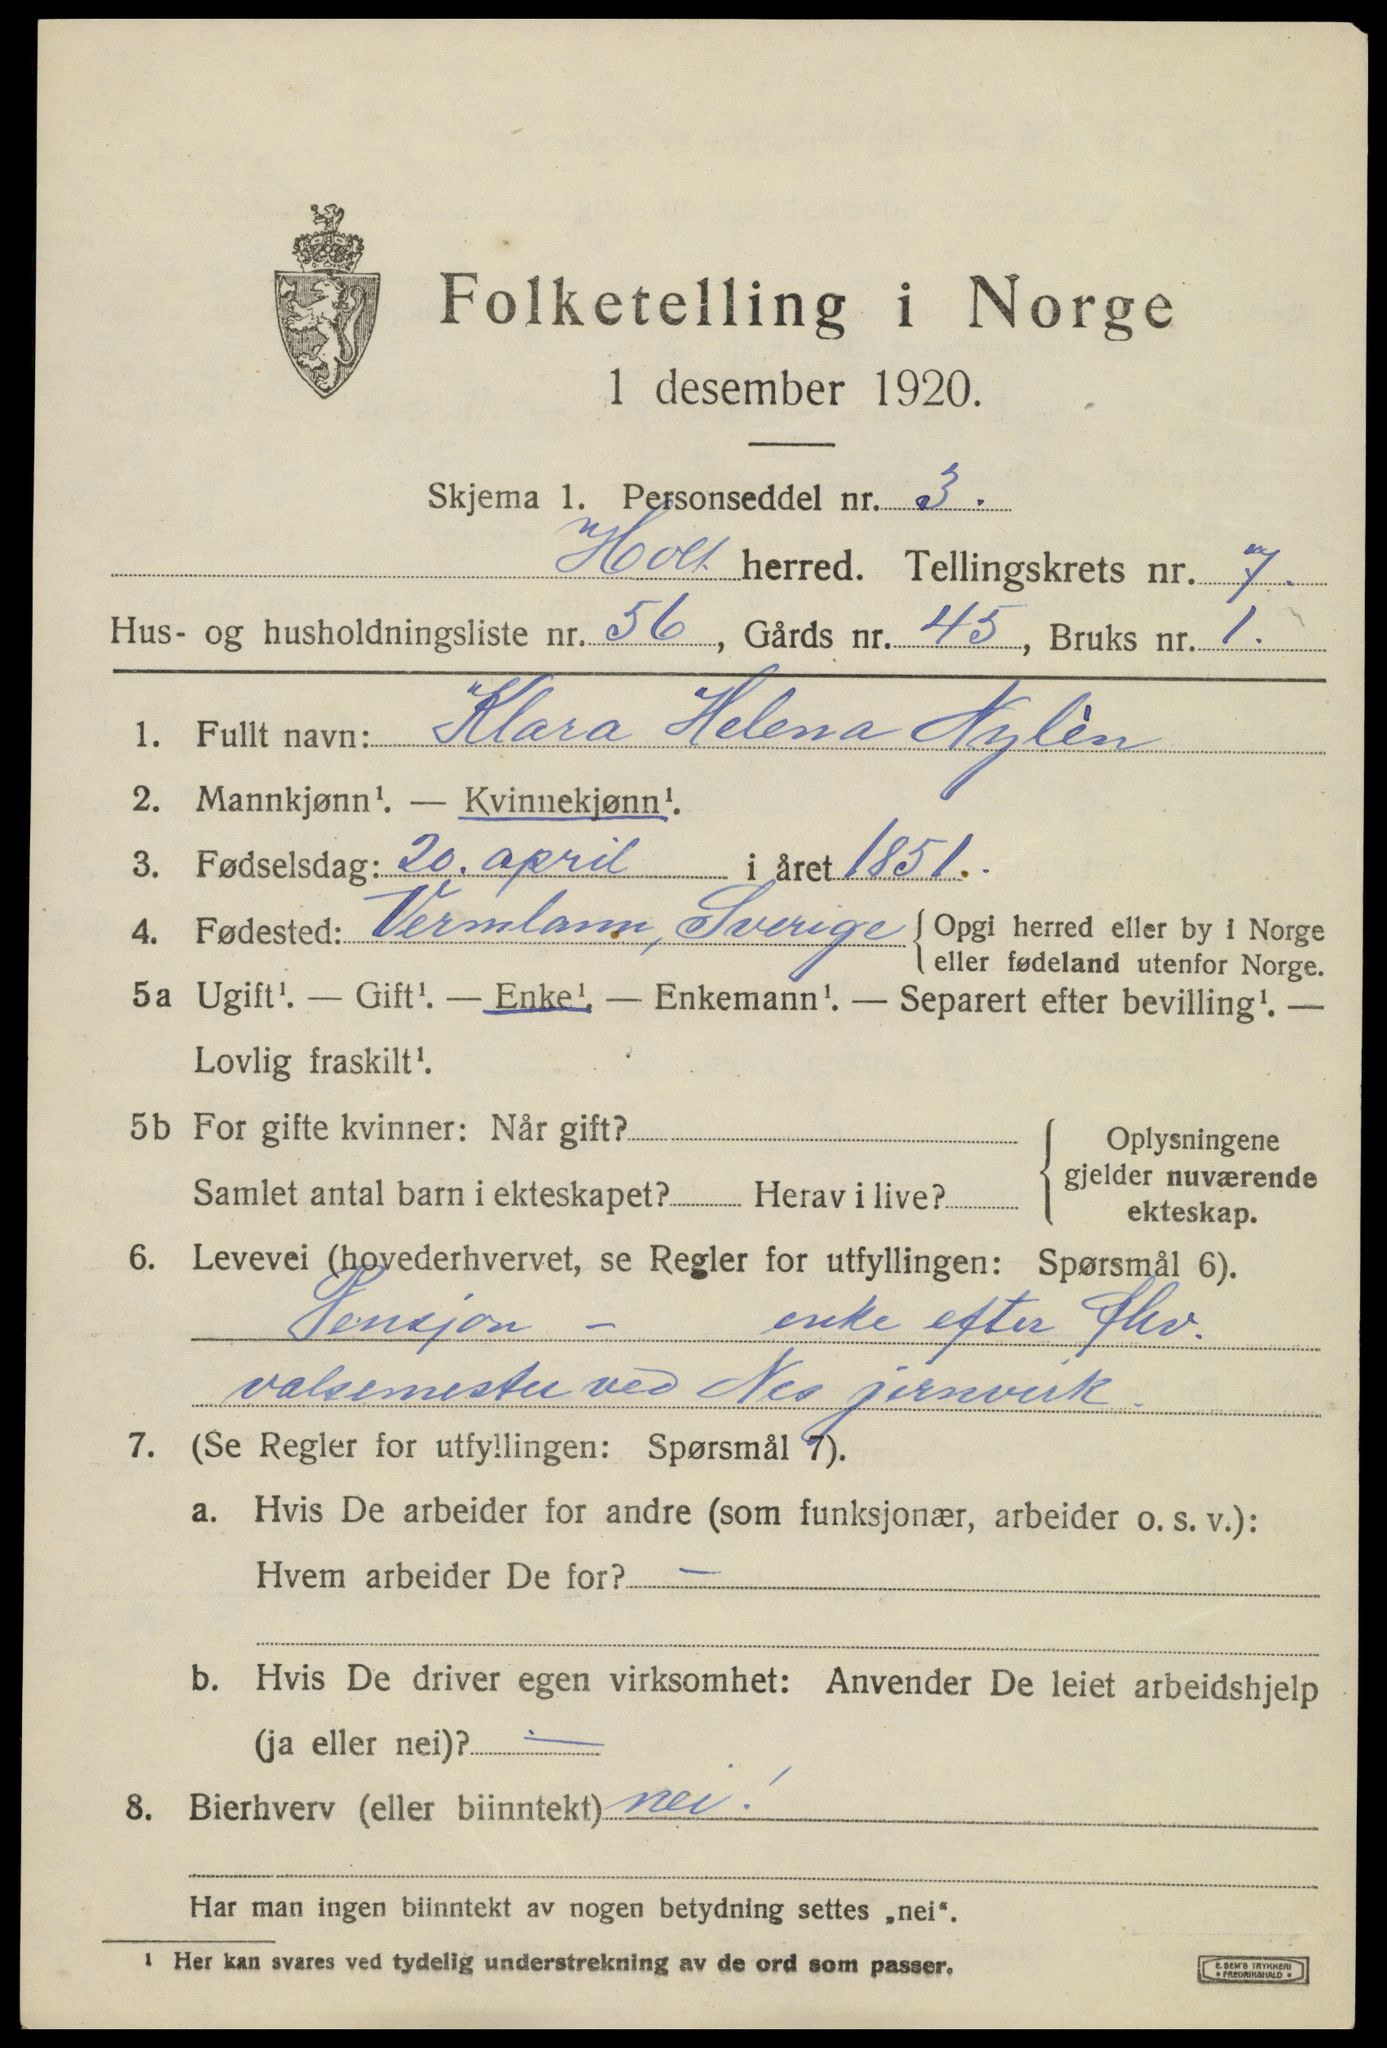 Folketelling i Norge
1 desember 1920.
Skjema 1. Personseddel nr. 3.
Holt herred. Tellingskrets nr. 7.
Hus- og husholdningsliste nr. 56, Gårds nr. 45, Bruks nr. 1.
1. Fullt navn: Klara Helena Nylèn
2. Mannkjønn¹. — Kvinnekjønn¹.
3. Fødselsdag: 20. april i året 1851.
4. Fødested: Vermlann, Sverige { Opgi herred eller by i Norge
eller fødeland utenfor Norge.
5a Ugift¹. — Gift¹. — Enke¹. — Enkemann¹. — Separert efter bevilling¹. —
Lovlig fraskilt¹.
5b For gifte kvinner: Når gift?
Samlet antal barn i ekteskapet? Herav i live?
{ Oplysningene
gjelder nuværende
ekteskap.
6. Levevei (hovederhvervet, se Regler for utfyllingen: Spørsmål 6).
Pensjon – enke efter
valsemester ved Nes jernverk.
7. (Se Regler for utfyllingen: Spørsmål 7).
a. Hvis De arbeider for andre (som funksjonær, arbeider o. s. v.):
Hvem arbeider De for? —
b. Hvis De driver egen virksomhet: Anvender De leiet arbeidshjelp
(ja eller nei)? —
8. Bierhverv (eller biinntekt) nei!
Har man ingen biinntekt av nogen betydning settes „nei“.
¹ Her kan svares ved tydelig understrekning av de ord som passer.
E. SEM'S TRYKKERI
• FREDRIKSHALD •